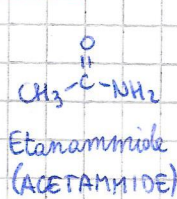 O
CH₃-C-NH₂
Etanammide
(ACETAMMIDE)